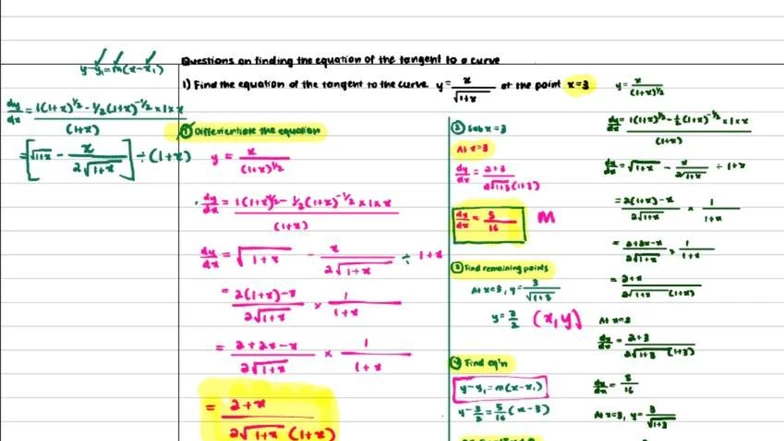 Questions on finding the equation of the tangent to a curve
1) Find the equation of the tangent to the curve y = x/√(1+x) at the point x=3
y-y₁=m(x-x₁)
dy/dx = 1(1+x)^½ - ½(1+x)^-½ × 1 × x / (1+x)
= [√(1+x) - x/(2√(1+x))] ÷ (1+x)
① Differentiate the equation
y = x/(1+x)^½
dy/dx = 1(1+x)^½ - ½(1+x)^-½ × 1 × x / (1+x)
dy/dx = √(1+x) - x/(2√(1+x)) ÷ 1+x
= 2(1+x)-x / 2√(1+x) × 1/(1+x)
= 2+2x-x / 2√(1+x) × 1/(1+x)
= 2+x / 2√(1+x) (1+x)
② Sub x=3
At x=3
dy/dx = 2+3 / 2√(1+3) (1+3)
dy/dx = 5/16 M
③ Find remaining points
At x=3, y = 3/√(1+3)
y = 3/2 (x, y)
④ Find eq'n
y-y₁=m(x-x₁)
y-3/2 = 5/16 (x-3)
y = x/(1+x)^½
dy/dx = 1(1+x)^½ - ½(1+x)^-½ × 1 × x / (1+x)
dy/dx = √(1+x) - x/(2√(1+x)) ÷ 1+x
= 2(1+x)-x / 2√(1+x) × 1/(1+x)
= 2+2x-x / 2√(1+x) × 1/(1+x)
= 2+x / 2√(1+x) (1+x)
At x=3
dy/dx = 2+3 / 2√(1+3) (1+3)
dy/dx = 5/16
At x=3, y = 3/√(1+3)